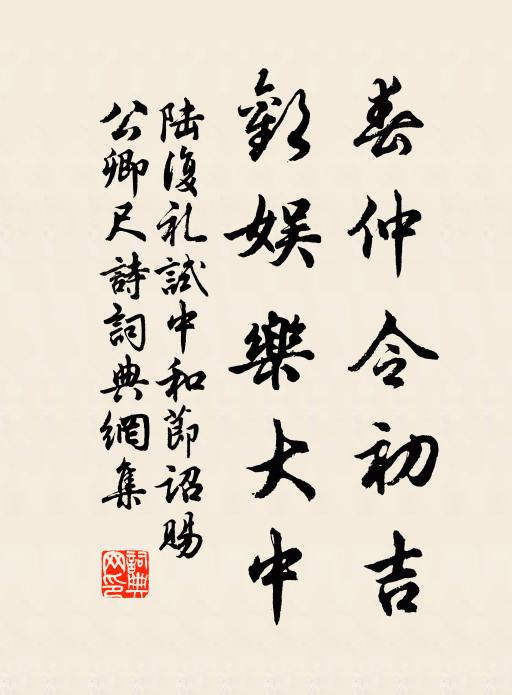 春仲令初吉
歡娛樂大中
陸復礼試中和節詔賜
公卿尺詩詞典網集
詞典網印